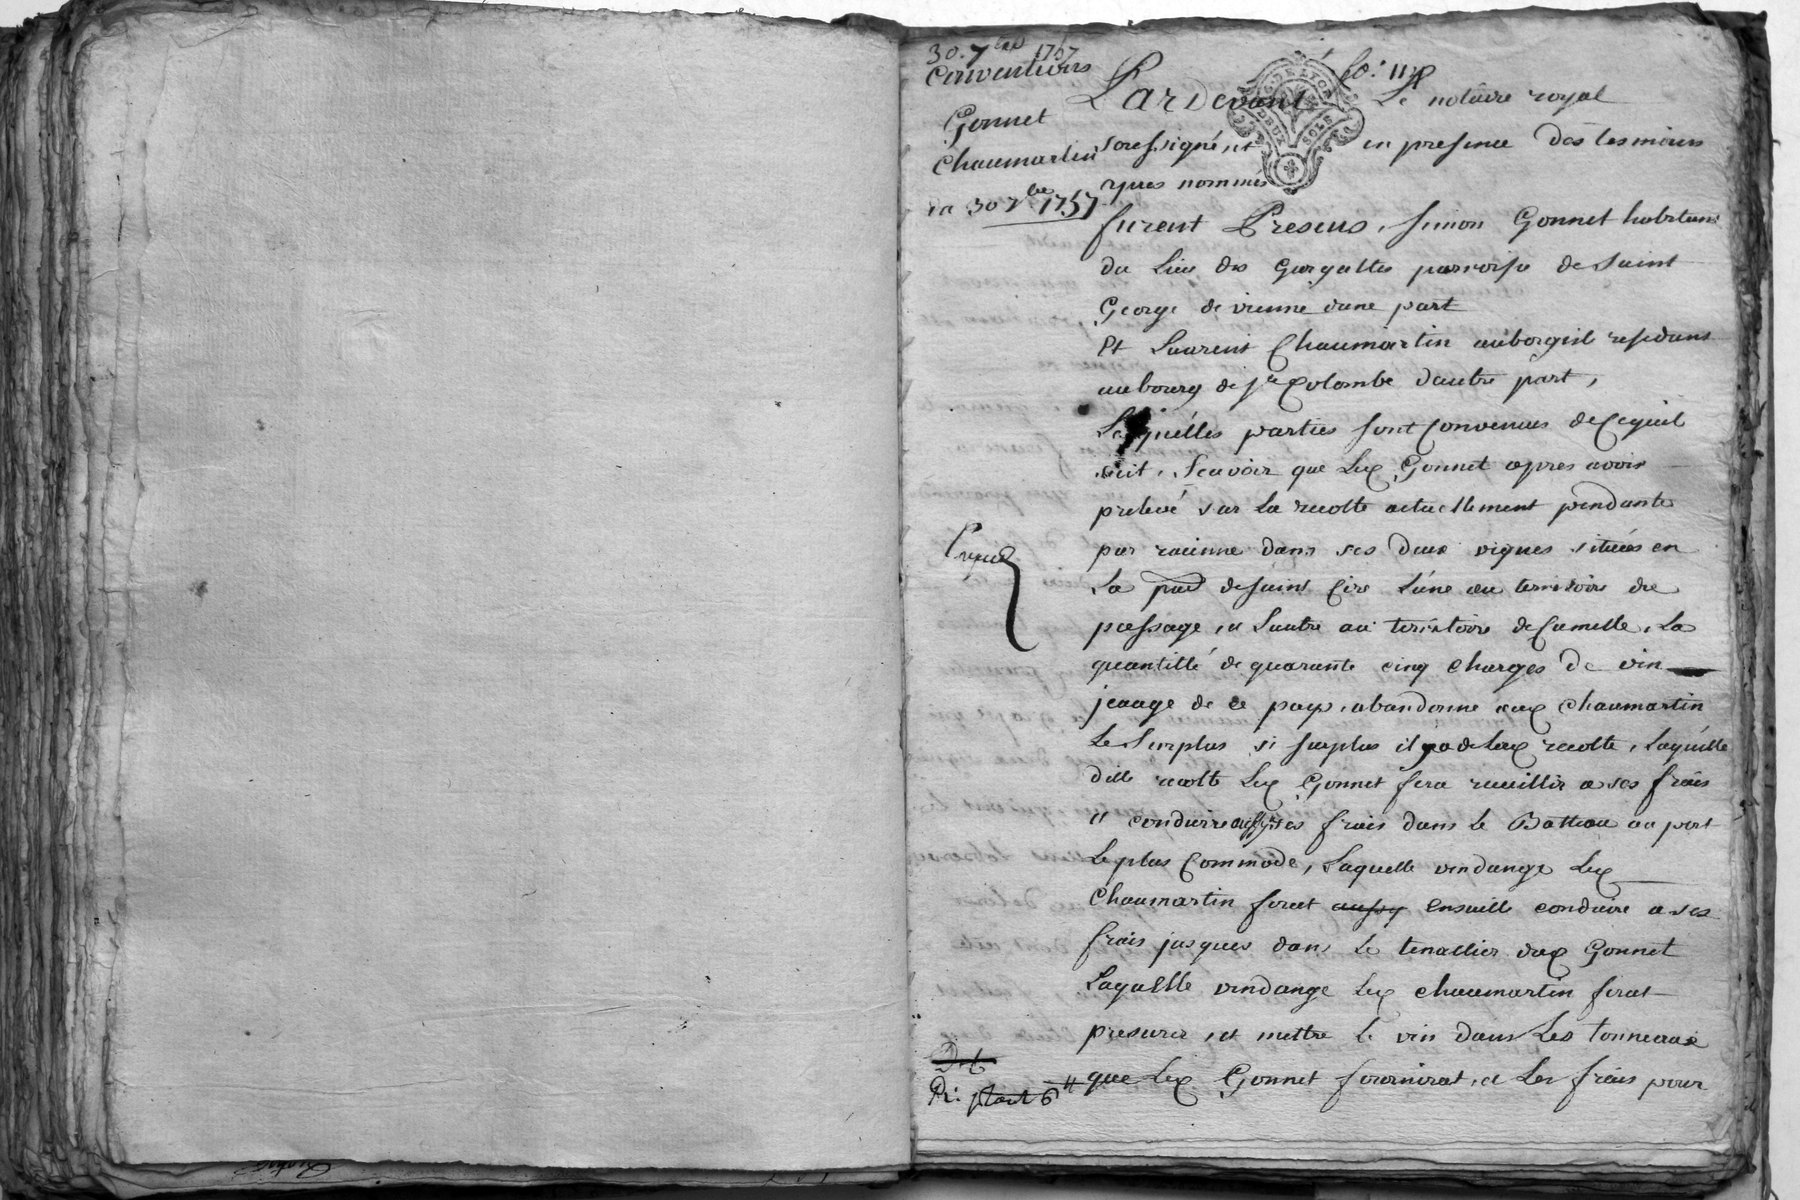 30. 7bre 1757
Conventions
Gonnet
Chaumartin
du 30 7bre 1757
fo: 118
Pardevant Le notaire royal
soussigné, et en presence des tesmoins
apres nommés
furent Presens, Simon Gonnet habitant
du Lieu des Gargattes parroisse de Saint
George de vienne d'une part
Et Laurent Chaumartin aubergist residant
au bourg de Ste Colombe d'autre part,
Lesquélles parties sont Convenues de Ce qui
suit, Scavoir que Led Gonnet apres avoir
prelevé sur La recolte actuellement pendante
par racinne dans ses deux vignes situées en
La parr de saint Cire L'une au territoire du
passage, et L'autre au territoire de Cumelle, La
quantitté de quarante cinq charges de vin
jeauge de ce pays, abandonne aud Chaumartin
Le Surplus si surplus il y a de lad recolte, Laquélle
ditte recolte Led Gonnet fera recuillir a ses frais
et conduirre aussy a ses frais dans Le Batteau au port
Le plus Commode, Laquelle vindange Led
Chaumartin ferat aussy Ensuitte conduire a ses
frais jusques dans Le tenallier dud Gonnet
Laquélle vindange Led chaumartin ferat
presurer, et mettre Le vin dans Les tonneaux
que Led Gonnet fournirat, et Les frais pour